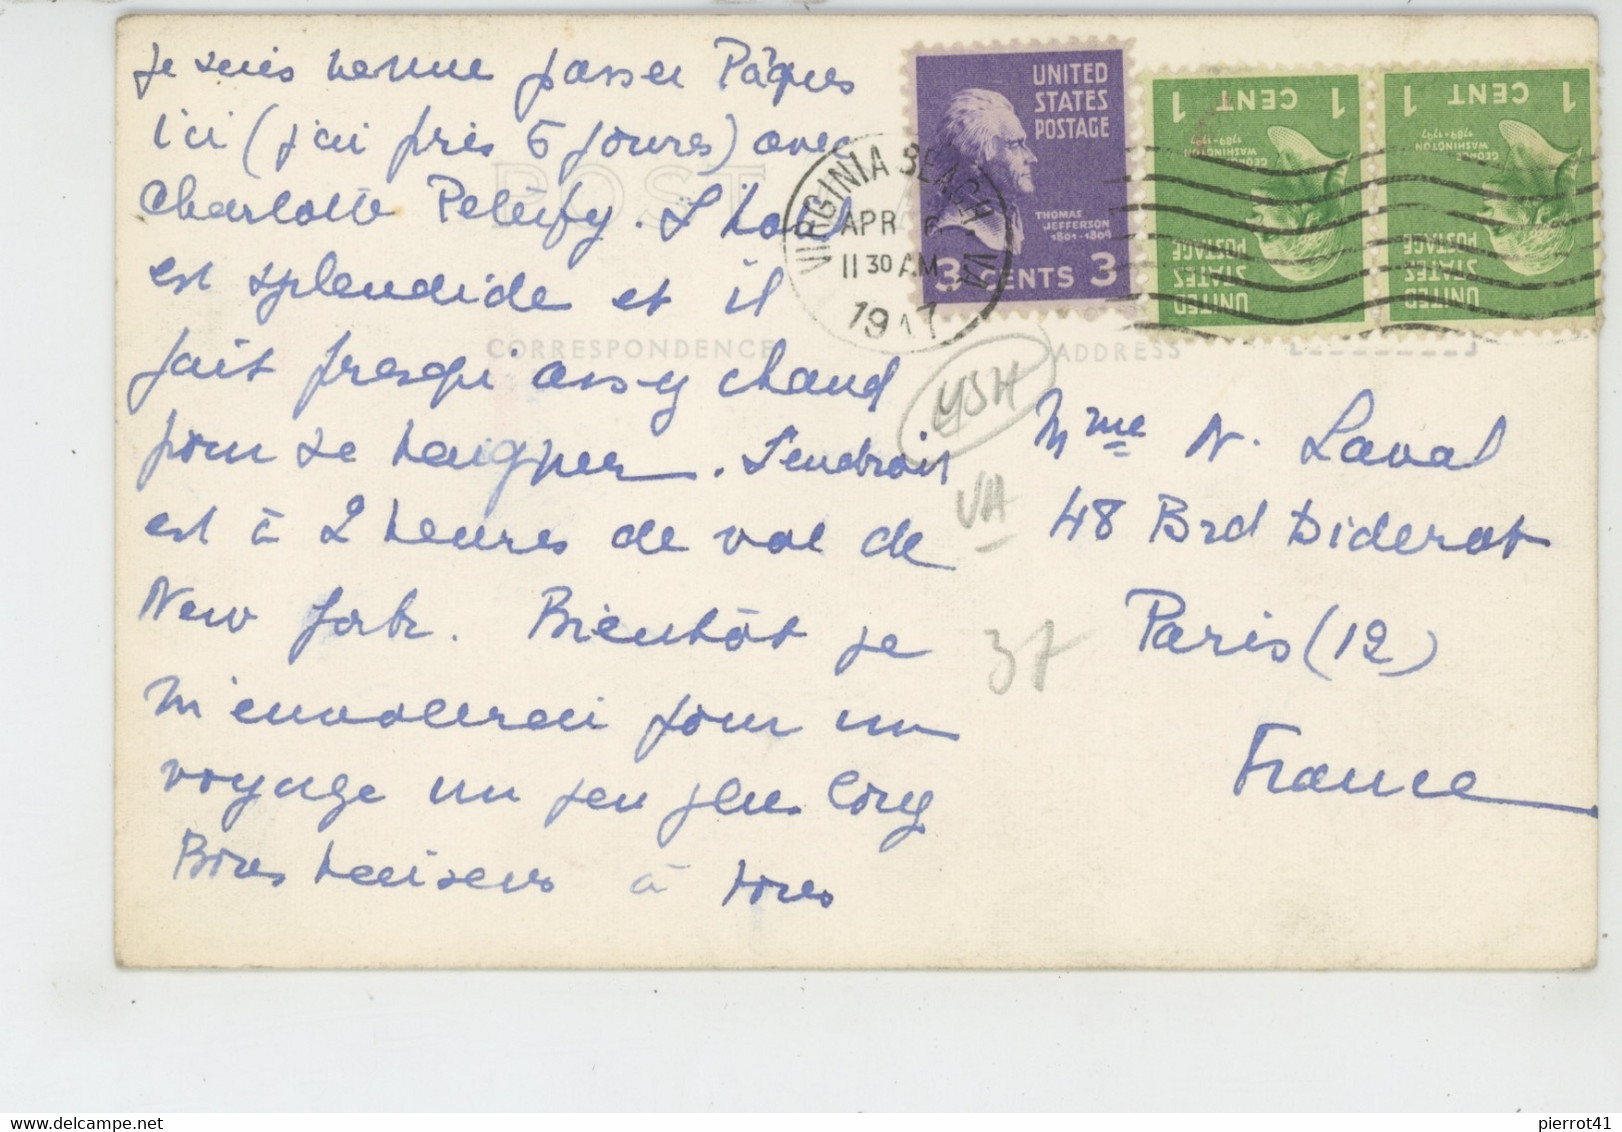 Je suis venue passer Pâques
ici (j'ai pris 5 jours) avec
Charlotte. L'hotel
est splendide et il
fait presqu' assez chaud
pour se baigner. L'endroit
est à 2 heures de vol de
New York. Bientôt je
m'envolerai pour un
voyage un peu plus long
Bons baisers à tous
POST
CORRESPONDENCE
ADDRESS
VIRGINIA BEACH, VA
APR 6
11 30 AM
1947
UNITED
STATES
POSTAGE
THOMAS
JEFFERSON
1801-1809
3 CENTS 3
1 CENT 1
GEORGE
WASHINGTON
1789-1797
UNITED
STATES
POSTAGE
1 CENT 1
GEORGE
WASHINGTON
1789-1797
UNITED
STATES
POSTAGE
VA
37
Mme N. Laval
48 Brd Diderot
Paris (12)
France
pierrot41